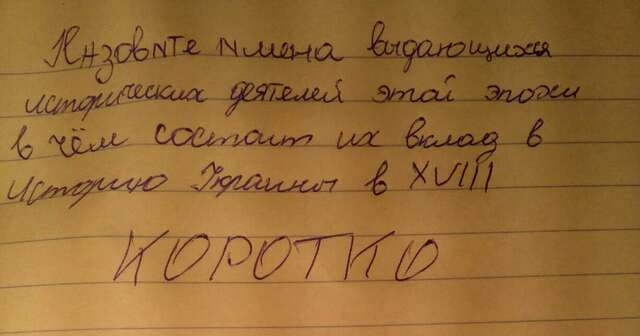 Назовите имена выдающихся
исторических деятелей этой эпохи
в чём состоит их вклад в
историю Украины в XVIII
КОРОТКО